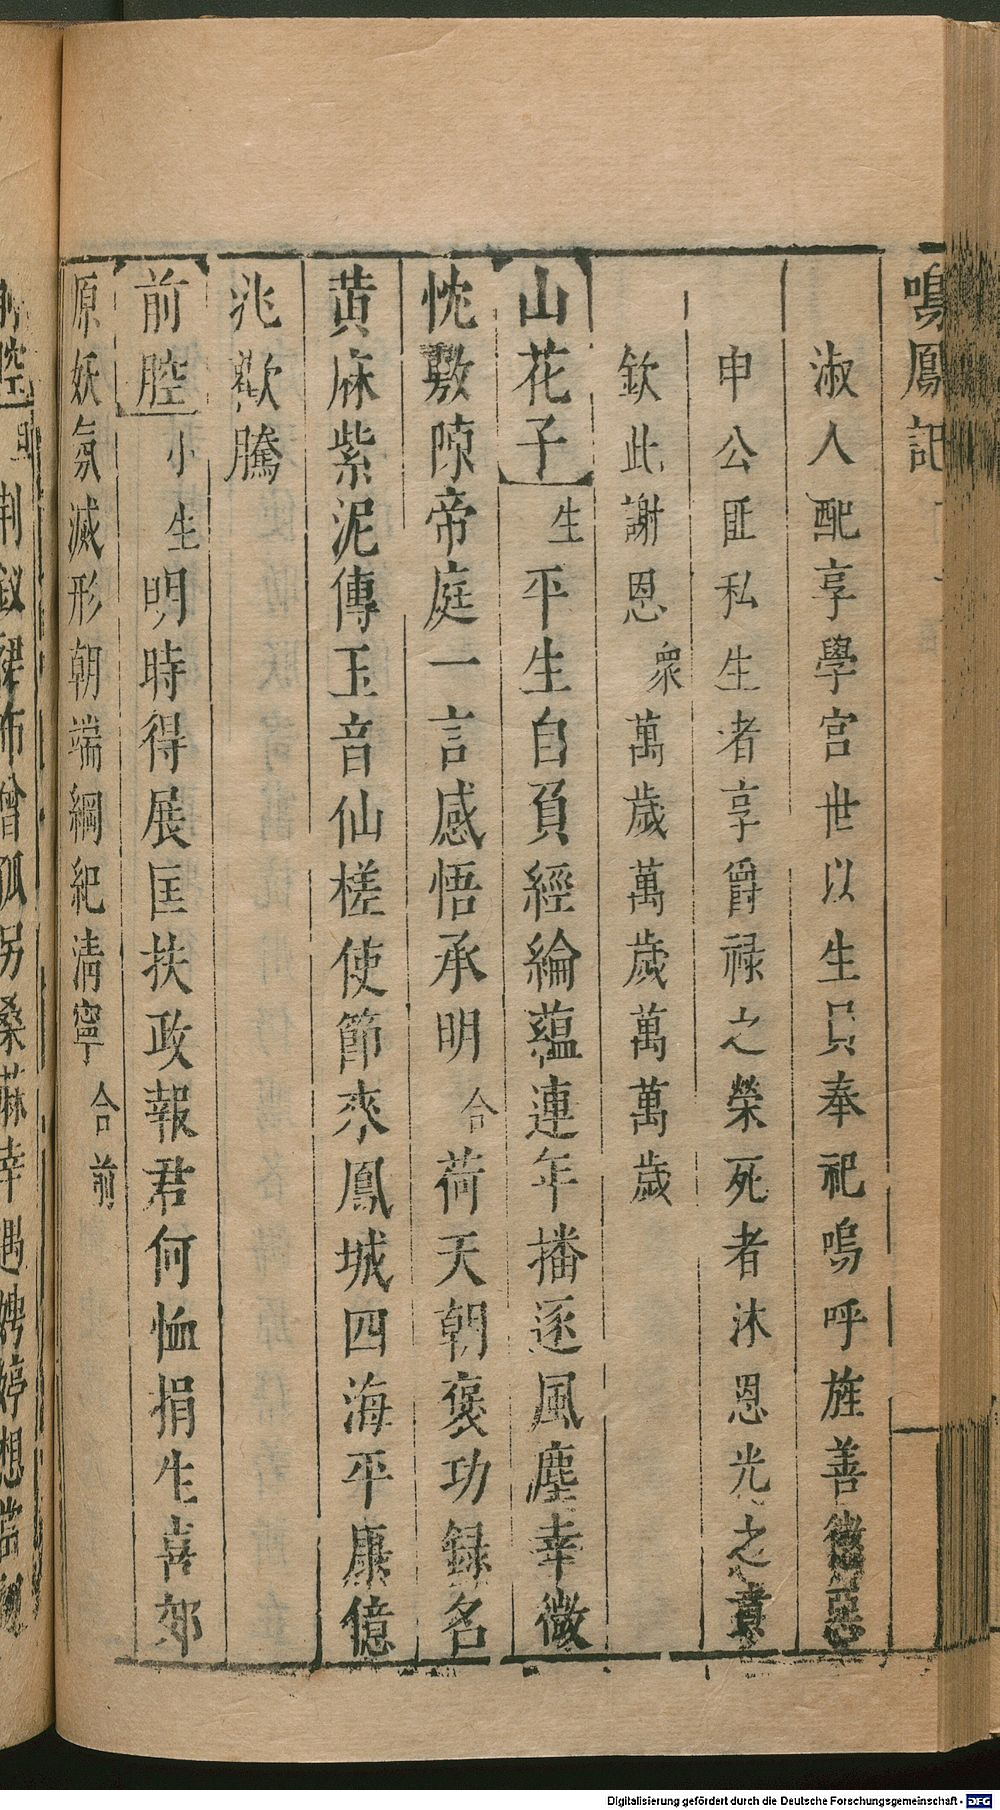 鳴鳳記
淑人配享學宮世以生員奉祀嗚呼旌善懲惡
申公匪私生者享爵祿之榮死者沐恩光之意
欽此謝恩衆萬歲萬歲萬萬歲
山花子生平生自負經綸蘊連年播逐風塵幸微
忱敷陳帝庭一言感悟承明合荷天朝褒功録名
黄麻紫泥傳玉音仙槎使節來鳳城四海平康億
兆歡騰
前腔小生明時得展匡扶政報君何恤捐生喜郊
原妖氛滅形朝端綱紀清寧合前
前腔旦荆釵裙布曾孤另桑蔴幸遇娉婷想當
Digitalisierung gefördert durch die Deutsche Forschungsgemeinschaft - DFG